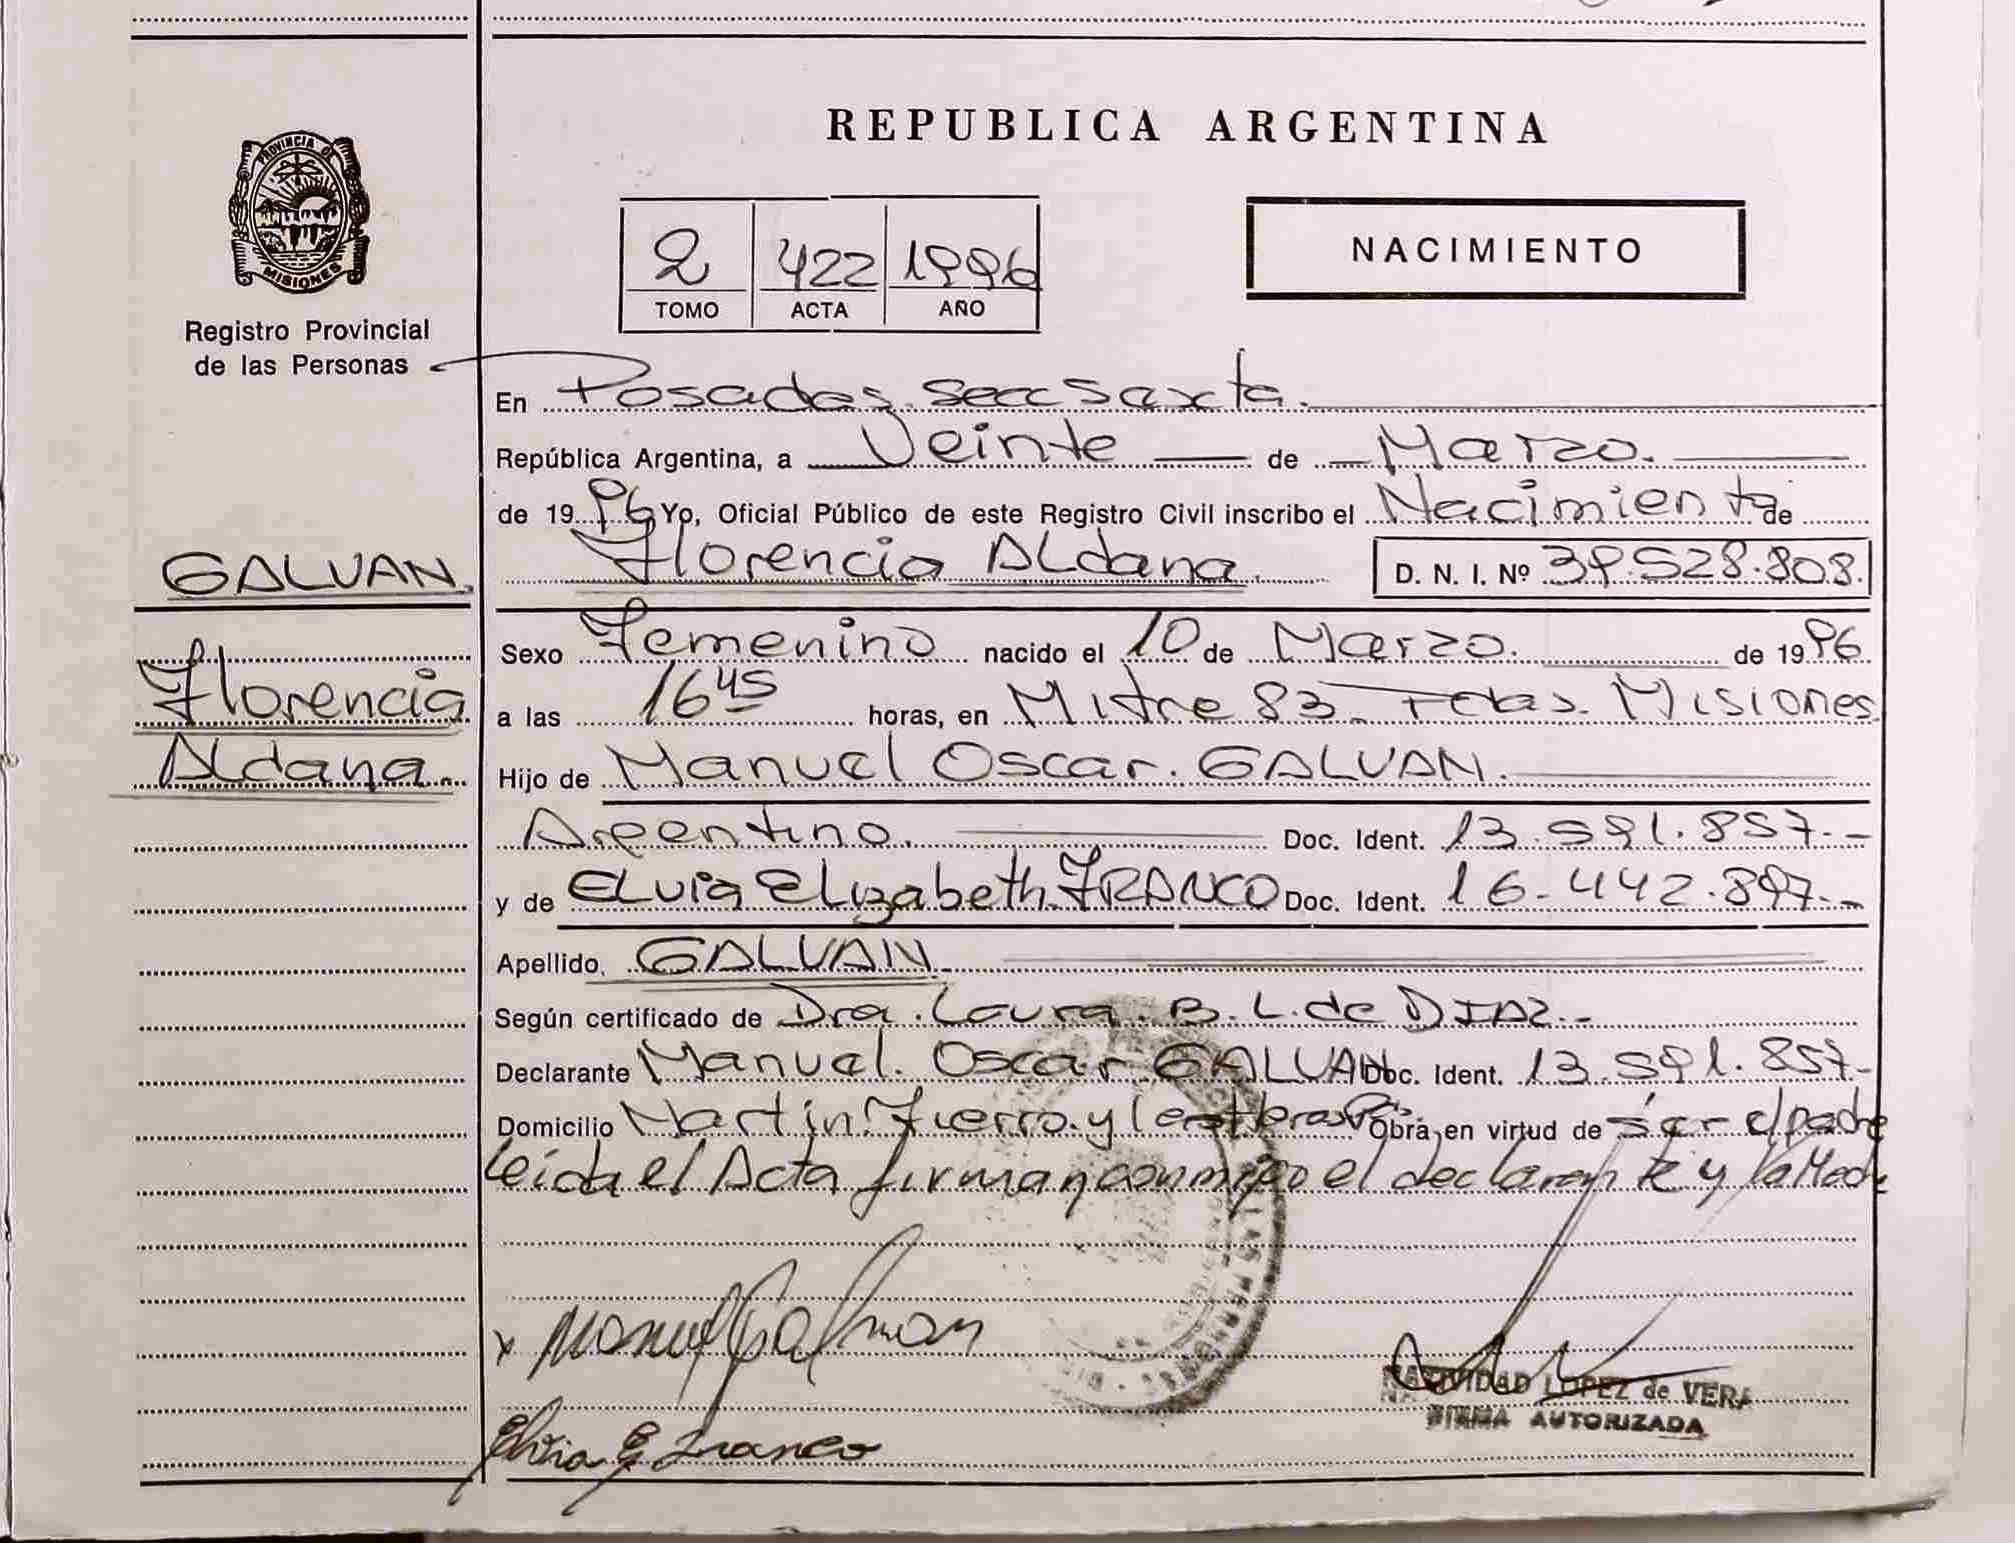 PROVINCIA DE
MISIONES
Registro Provincial
de las Personas
GALVAN.
Florencia
Aldana.
REPUBLICA ARGENTINA
2 422 1996
TOMO ACTA AÑO
NACIMIENTO
En Posadas. Secc Sexta.
República Argentina, a Veinte de Marzo.
de 1996 Yo, Oficial Público de este Registro Civil inscribo el Nacimiento de
Florencia Aldana. D. N. I. Nº 39.528.808.
Sexo Femenino nacido el 10 de Marzo. de 1996
a las 16 45 horas, en Mitre 83. Pdas. Misiones
Hijo de Manuel Oscar. GALVAN.
Argentino. Doc. Ident. 13.591.857.-
y de ELvia Elizabeth. FRANCO Doc. Ident. 16.442.897.-
Apellido. GALVAN.
Según certificado de Dra. Laura. B. L. de DIAZ.-
Declarante Manuel. Oscar GALVAN Doc. Ident. 13.591.857.-
Domicilio Martin. Fierro. y Obra, en virtud de ser el padre
Leida el Acta firman conmigo el declarante y la Madre
x Manuel Galvan
NATIVIDAD LOPEZ de VERA
FIRMA AUTORIZADA
Elvia E Franco